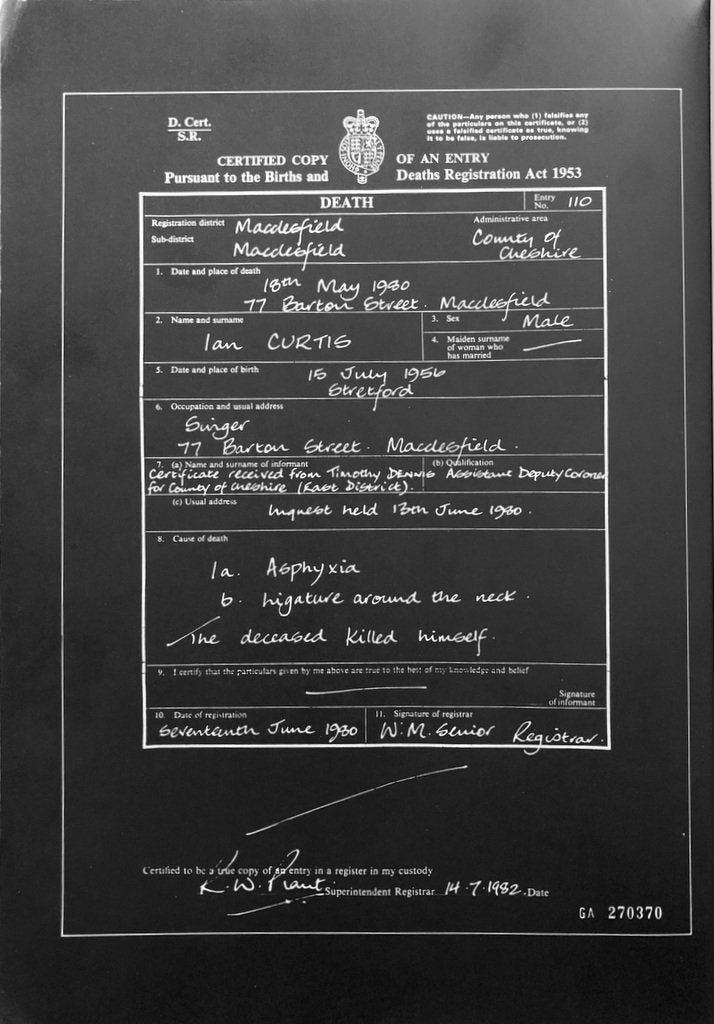 D. Cert.
S.R.
CAUTION—Any person who (1) falsifies any
of the particulars on this certificate, or (2)
uses a falsified certificate as true, knowing
it to be false, is liable to prosecution.
CERTIFIED COPY OF AN ENTRY
Pursuant to the Births and Deaths Registration Act 1953
DEATH
Entry No. 110
Registration district Macclesfield
Administrative area
Sub-district Macclesfield
County of
Cheshire
1. Date and place of death
18th May 1980
77 Barton Street. Macclesfield
2. Name and surname
Ian CURTIS
3. Sex Male
4. Maiden surname
of woman who
has married
5. Date and place of birth
15 July 1956
Stretford
6. Occupation and usual address
Singer
77 Barton Street. Macclesfield.
7. (a) Name and surname of informant
(b) Qualification
Certificate received from Timothy DENNIS Assistant Deputy Coroner
for County of Cheshire (East District).
(c) Usual address
Inquest held 13th June 1980.
8. Cause of death
1a. Asphyxia
b. Ligature around the neck.
The deceased killed himself.
9. I certify that the particulars given by me above are true to the best of my knowledge and belief
Signature
of informant
10. Date of registration
Seventeenth June 1980
11. Signature of registrar
W. M. Senior Registrar.
Certified to be a true copy of an entry in a register in my custody
K. W. Plant Superintendent Registrar 14.7.1982 Date
GA 270370